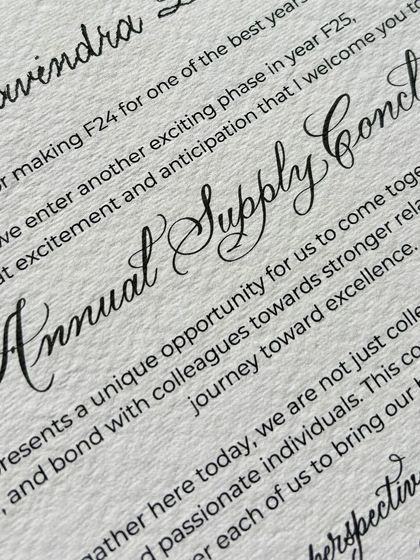 or making F24 for one of the best years
we enter another exciting phase in year F25,
at excitement and anticipation that I welcome you to
Annual Supply Concl
resents a unique opportunity for us to come toge
, and bond with colleagues towards stronger rela
journey toward excellence.
gather here today, we are not just colle
d passionate individuals. This co
er each of us to bring our
perspective